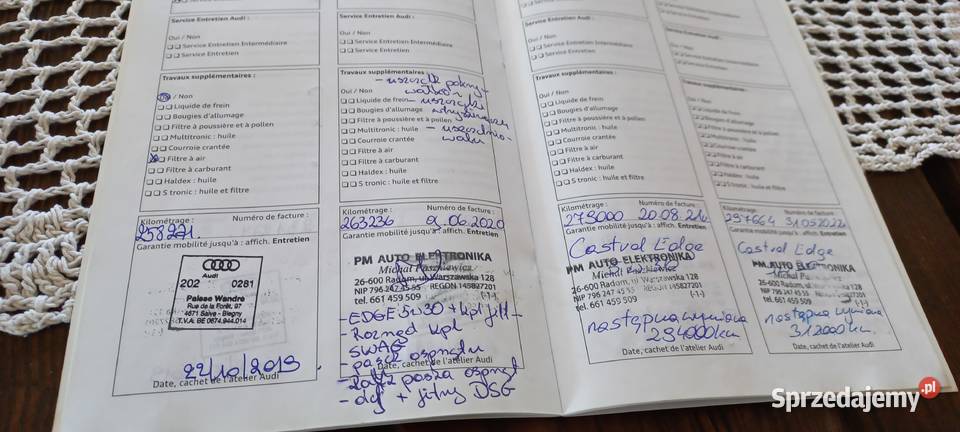 Service Entretien Audi :
Oui / Non
Service Entretien Intermédiaire
Service Entretien
Travaux supplémentaires :
/ Non
Liquide de frein
Bougies d'allumage
Filtre à poussière et à pollen
Multitronic : huile
Courroie crantée
Filtre à air
Filtre à carburant
Haldex : huile
S tronic : huile et filtre
Kilométrage :
Numéro de facture :
258271.
Garantie mobilité jusqu'à : affich. Entretien
Audi
202 0281
Palese Wandre
Rue de la Forêt, 97
4671 Saive - Blegny
T.V.A. BE 0674.944.014
22/10/2019
Date, cachet de l'atelier Audi
Service Entretien Audi :
Oui / Non
Service Entretien Intermédiaire
Service Entretien
Travaux supplémentaires :
- uszczelk pokryw
Oui / Non
Liquide de frein
Bougies d'allumage
Filtre à poussière et à pollen
Multitronic : huile
Courroie crantée
Filtre à air
Filtre à carburant
Haldex : huile
S tronic : huile et filtre
Kilométrage :
Numéro de facture :
263236 9.06.2020
Garantie mobilité jusqu'à : affich. Entretien
PM AUTO ELEKTRONIKA
Michał Paszkiewicz
26-600 Radom, ul. Warszawska 128
NIP 796 247 45 55 REGON 145827201
tel. 661 459 509 (-1-)
- EDGE 5W30 + kpl filt -
- Rozrząd kpl
SWAG
- pasek osprzętu
Date, cachet de l'atelier Audi
- olej + filtry DSG
Service Entretien Audi :
Oui / Non
Service Entretien Intermédiaire
Service Entretien
Travaux supplémentaires :
Oui / Non
Liquide de frein
Bougies d'allumage
Filtre à poussière et à pollen
Multitronic : huile
Courroie crantée
Filtre à air
Filtre à carburant
Haldex : huile
S tronic : huile et filtre
Kilométrage :
Numéro de facture :
279000 20.08.21r
Garantie mobilité jusqu'à : affich. Entretien
Castrol Edge
PM AUTO ELEKTRONIKA
Michał Paszkiewicz
26-600 Radom, ul. Warszawska 128
NIP 796 247 45 55 REGON 145827201
tel. 661 459 509 (-1-)
następna wymiana
294000 km
Date, cachet de l'atelier Audi
Service Entretien Audi :
Oui / Non
Service Entretien Intermédiaire
Service Entretien
Travaux supplémentaires :
Oui / Non
Liquide de frein
Bougies d'allumage
Filtre à poussière et à pollen
Multitronic : huile
Courroie crantée
Filtre à air
Filtre à carburant
Haldex : huile
S tronic : huile et filtre
Kilométrage :
Numéro de facture :
297664 31.05.2022
Garantie mobilité jusqu'à : affich. Entretien
Castrol Edge
PM AUTO ELEKTRONIKA
26-600 Radom, ul. Warszawska 128
tel. 661 459 509 (-1-)
następna wymiana
312000 km.
Date, cachet de l'atelier Audi
Sprzedajemy.pl